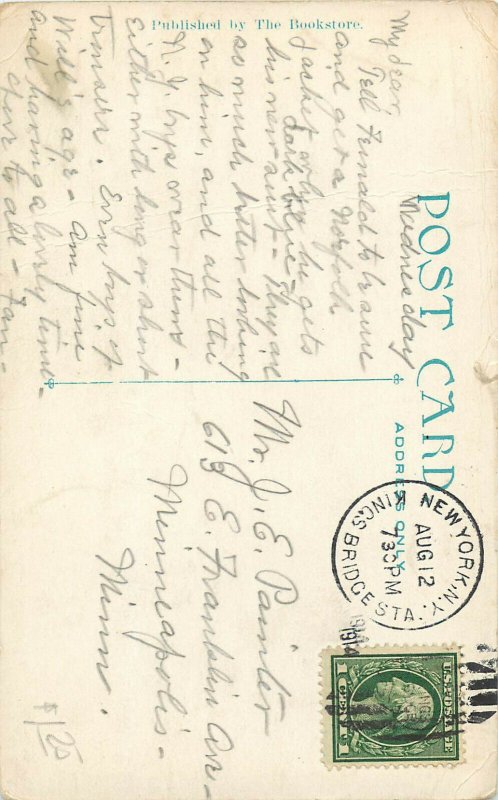 Published by The Bookstore.
POST CARD
ADDRESS ONLY
Wednesday
My dear,
Tell Fernald to be sure
and get a Norfolk
Jacket when he gets
his new suit - They are
Look blue -
as much better looking
on him, and all the
N. Y. boys wear them -
either with long or short
trousers. Even boys of
Will's age - Am fine
and having a lovely time -
love to all - Fan -
Mr. J. E. Painter
619 E. Franklin Ave -
Minneapolis -
Minn.
NEW YORK, N.Y.
AUG 12
730 PM
KINGSBRIDGE STA.
1914
U.S. POSTAGE
1 CENT 1
$1 25